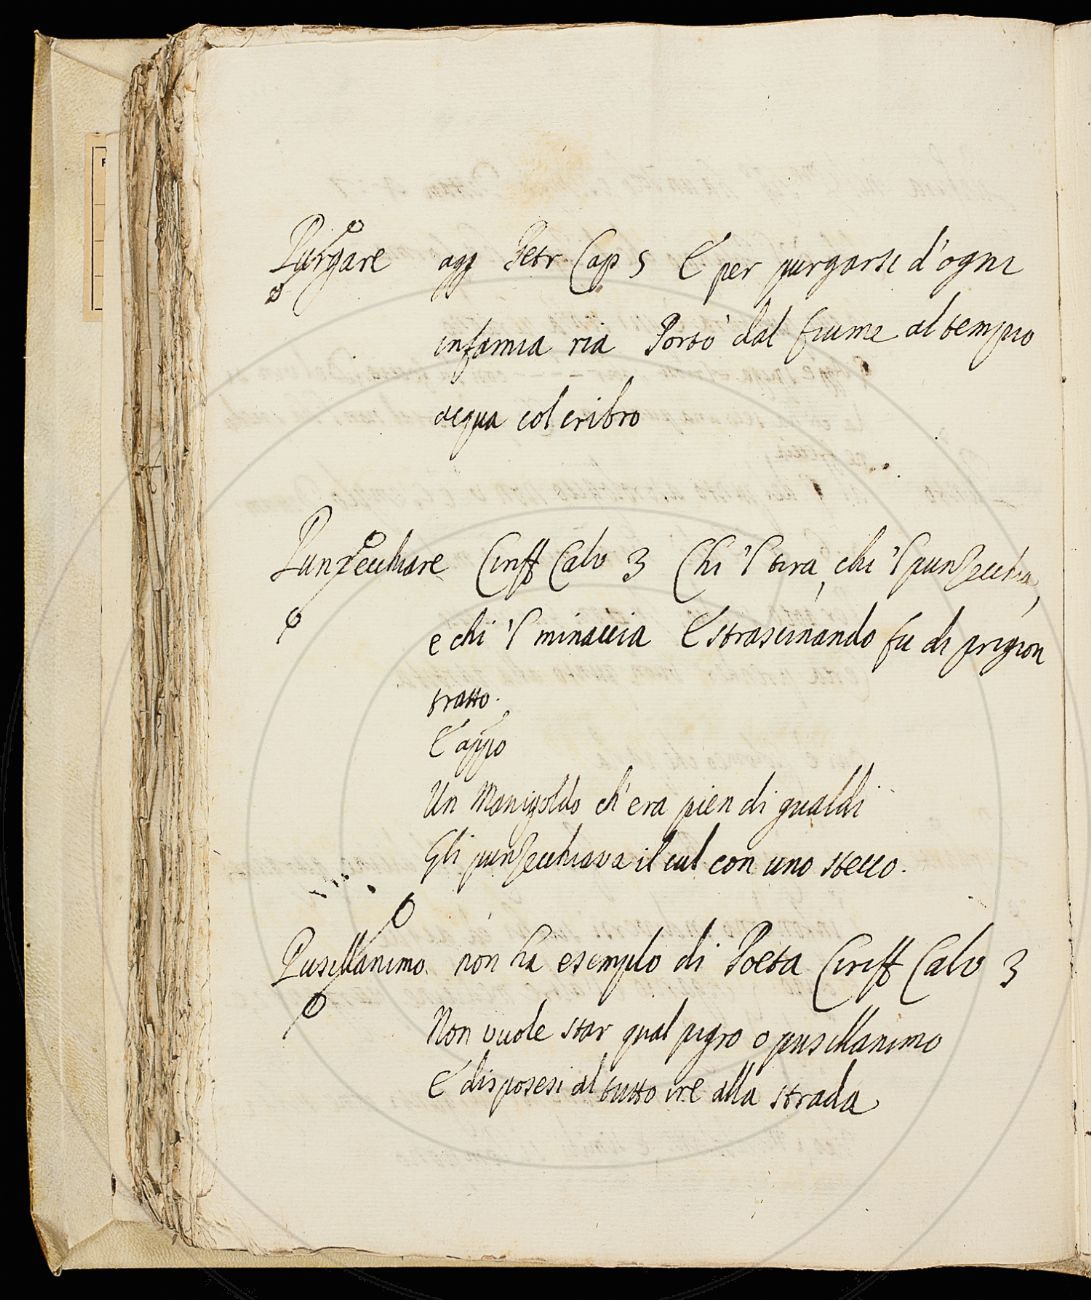 Purgare agg Petr Cap 5 E per purgarsi d'ogni
infamia ria Portò dal fiume al tempio
acqua col cribro
Punzecchiare Ciriff Calv 3 Chi 'l tira, chi 'l punzecchia,
e chi 'l minaccia E strascinando fu di prigion
tratto.
E appo
Un Manigoldo ch'era pien di gualdi
Gli punzecchiava il cul con uno stecco.
Pusillanimo. non ha esemplo di Poeta Ciriff Calv 3
Non vuole star qual pigro o pusillanimo
E disposesi al tutto ire alla strada